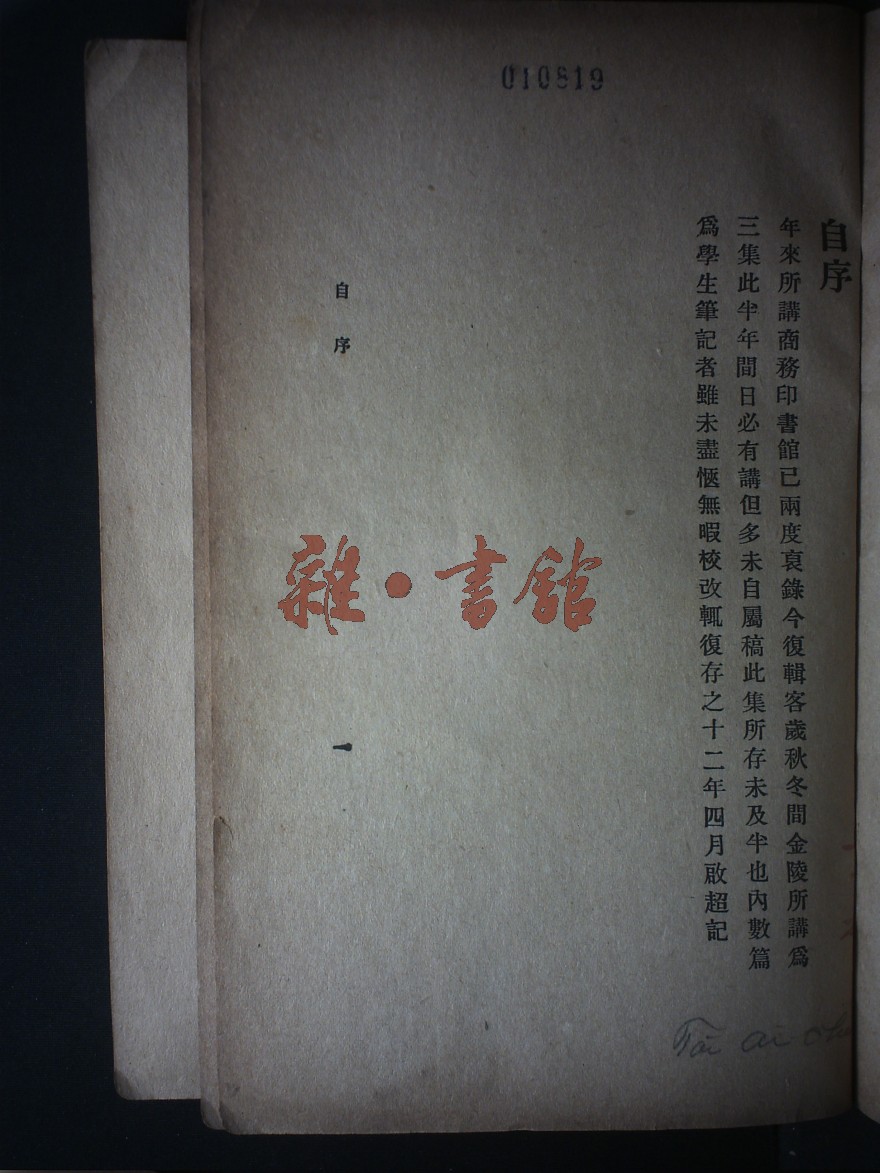 010819
自序
年來所講商務印書館已兩度裒錄今復輯客歲秋冬間金陵所講爲
三集此半年間日必有講但多未自屬稿此集所存未及半也內數篇
爲學生筆記者雖未盡愜無暇校改輒復存之十二年四月啟超記
自序
一
雜·書館